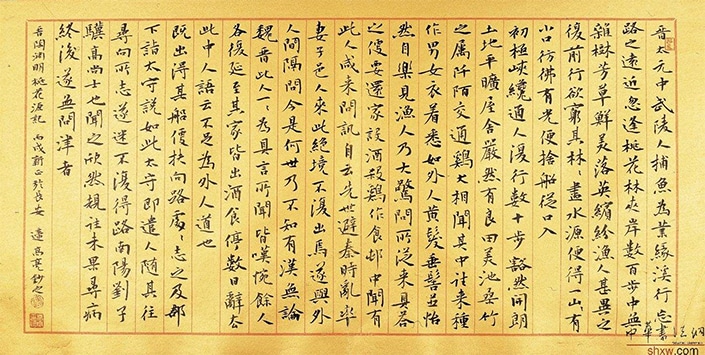 晋太元中武陵人捕魚為業緣溪行忘
路之遠近忽逢桃花林夾岸數百步中無
雜樹芳草鮮美落英繽紛漁人甚異之
復前行欲窮其林〻盡水源便得一山有
小口仿佛有光便捨船從口入
初極狹纔通人復行數十步豁然開朗
土地平曠屋舍嚴然有良田美池桑竹
之屬阡陌交通鷄犬相聞其中往来種
作男女衣着悉如外人黄髮垂髫並怡
然自樂見漁人乃大驚問所從来具答
之便要還家設酒殺鷄作食邨中聞有
此人咸来問訊自云先世避秦時亂率
妻子邑人来此絶境不復出焉遂與外
人間隔問今是何世乃不知有漢無論
魏晋此人一〻為具言所聞皆嘆惋餘人
各復延至其家皆出酒食停數日辭去
此中人語云不足為外人道也
既出得其船便扶向路處〻志之及郡
下詣太守說如此太守即遣人随其往
尋向所志遂迷不復得路南陽劉子
驥高尚士也聞之欣然規往未果尋病
終後遂無問津者
晋陶淵明桃花源記 丙戌新正於長安 高亮鈔之
shxw.com